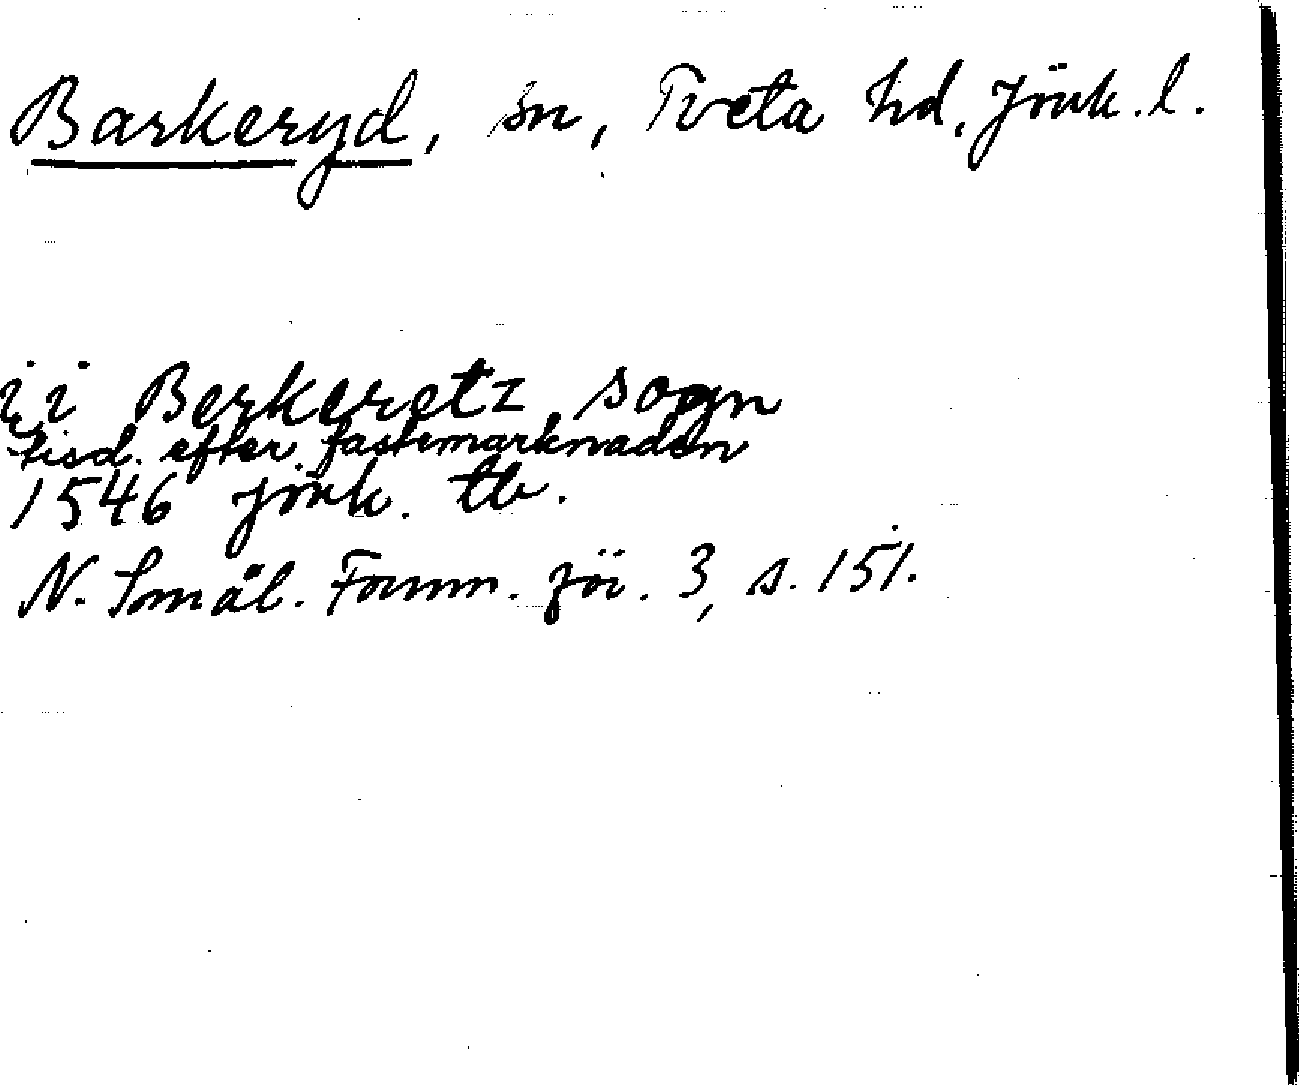 Barkeryd, sn, Tveta hd, Jönk. l.
i i Berkeretz sogn
tisd. efter fastemarknaden
1546 Jönk. tb.
N. Smål. Fornm. föi. 3, s. 151.